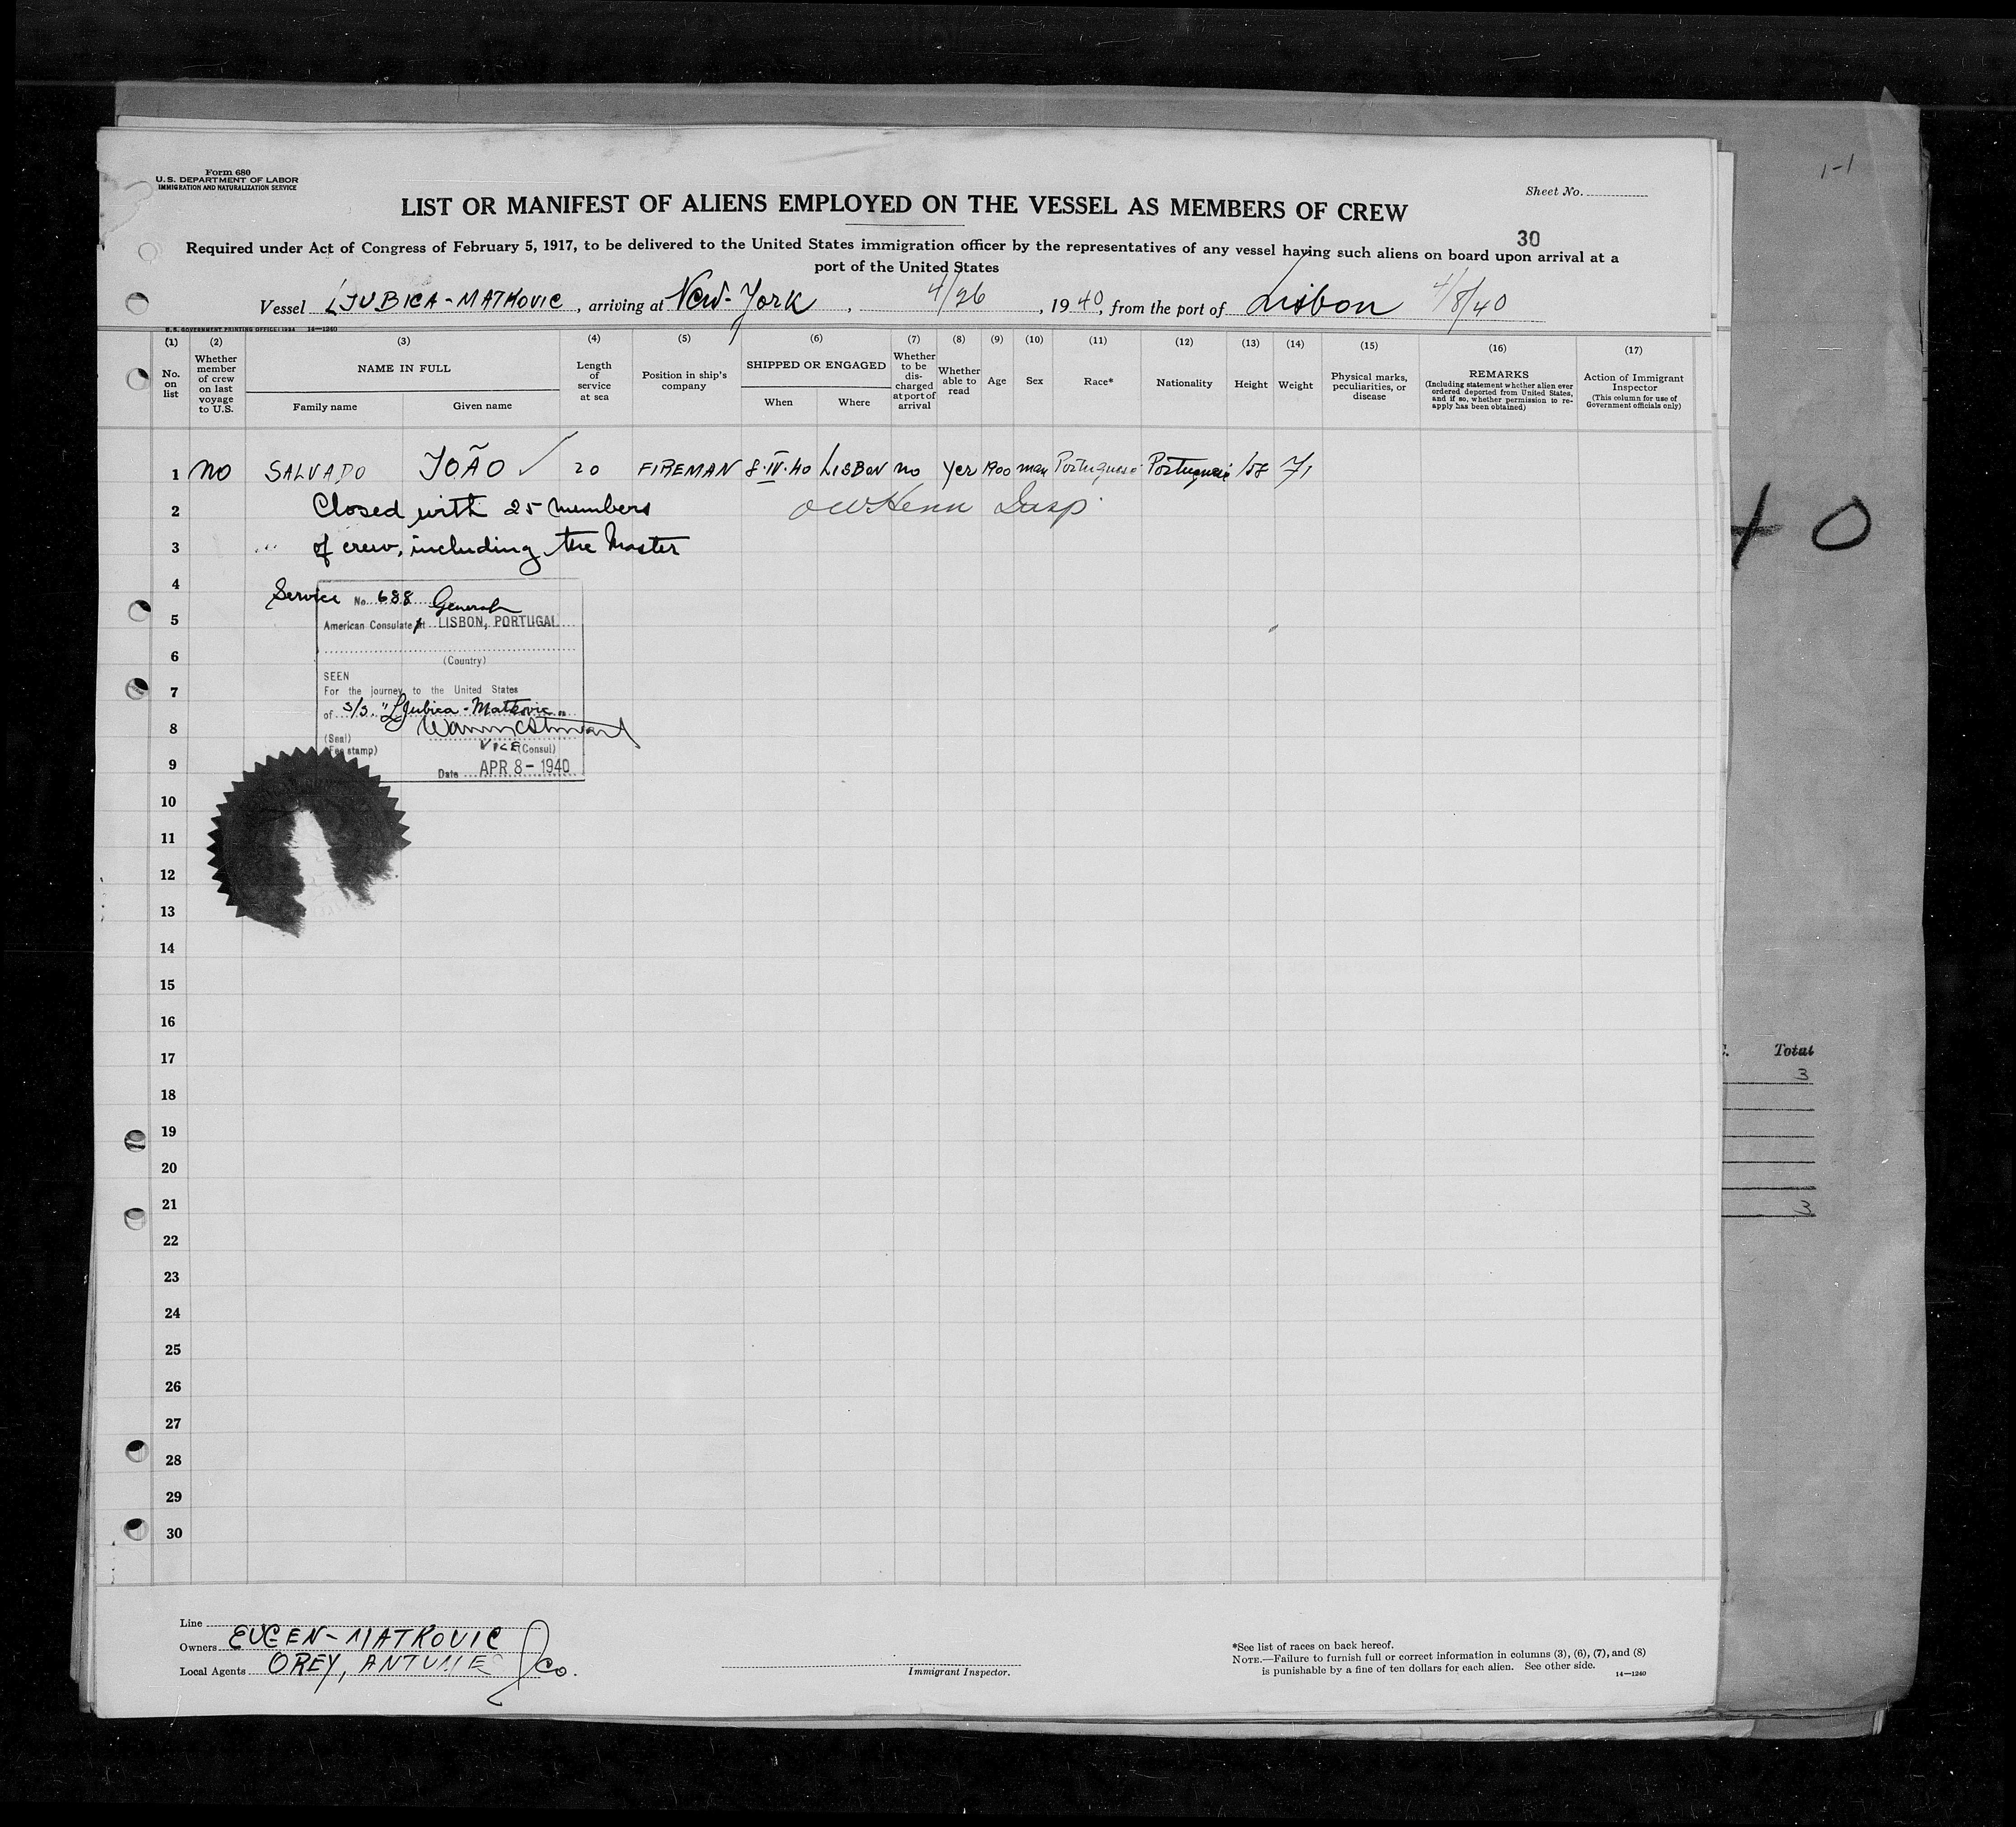 1-1
Form 680
U.S. DEPARTMENT OF LABOR
IMMIGRATION AND NATURALIZATION SERVICE
Sheet No.
LIST OR MANIFEST OF ALIENS EMPLOYED ON THE VESSEL AS MEMBERS OF CREW
30
Required under Act of Congress of February 5, 1917, to be delivered to the United States immigration officer by the representatives of any vessel having such aliens on board upon arrival at a
port of the United States
Vessel LJUBICA-MATKOVIC, arriving at New-York, 4/26, 1940, from the port of Lisbon 4/8/40
U.S. GOVERNMENT PRINTING OFFICE: 1934 14—1240
(1) No. on list
(2) Whether member of crew on last voyage to U.S.
(3) NAME IN FULL
Family name Given name
(4) Length of service at sea
(5) Position in ship's company
(6) SHIPPED OR ENGAGED
When Where
(7) Whether to be discharged at port of arrival
(8) Whether able to read
(9) Age
(10) Sex
(11) Race*
(12) Nationality
(13) Height
(14) Weight
(15) Physical marks, peculiarities, or disease
(16) REMARKS
(Including statement whether alien ever ordered deported from United States, and if so, whether permission to reapply has been obtained)
(17) Action of Immigrant Inspector
(This column for use of Government officials only)
1 no SALVADO JOÃO ✓ 20 FIREMAN 8·IV·40 LISBON no yes 1900 man Portuguese Portuguese 158 71
2 Closed with 25 members
3 of crew, including the Master
4 Service No. 688 General
5 American Consulate at LISBON, PORTUGAL
6 (Country)
SEEN
7 For the journey to the United States
of s/s. "Ljubica-Matkovic"
8
(Seal)
(Fee stamp) VICE (Consul)
9 Date APR 8-1940
10
11
12
13
14
15
16
17
18
19
20
21
22
23
24
25
26
27
28
29
30
40
Total
3
3
Line
Owners EUGEN-MATKOVIC
Local Agents OREY, ANTUNES & Co.
Immigrant Inspector.
*See list of races on back hereof.
NOTE.—Failure to furnish full or correct information in columns (3), (6), (7), and (8)
is punishable by a fine of ten dollars for each alien. See other side.
14—1240